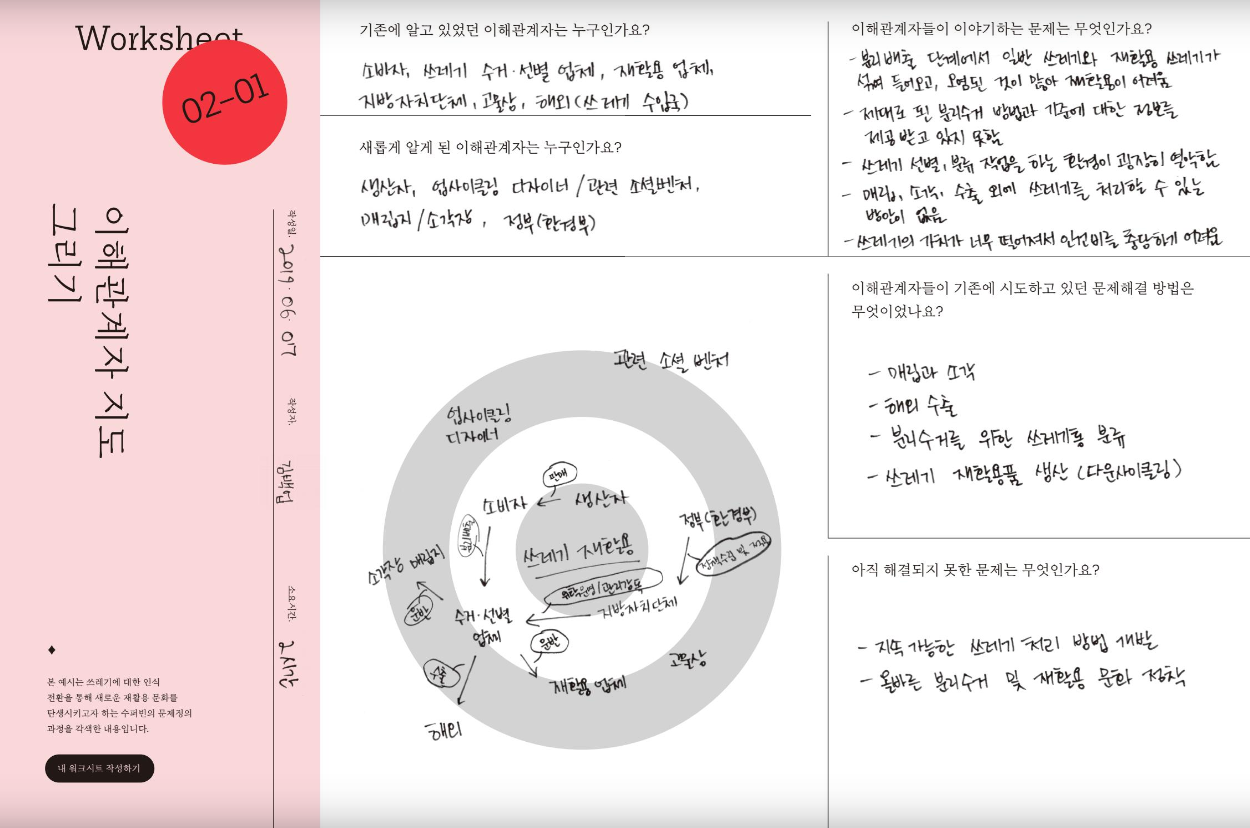 Worksheet
02-01
이해관계자 지도
그리기
작성일.
2019. 06. 07
작성자.
김백범
소요시간.
2시간
본 예시는 쓰레기에 대한 인식
전환을 통해 새로운 재활용 문화를
탄생시키고자 하는 수퍼빈의 문제정의
과정을 각색한 내용입니다.
내 워크시트 작성하기
기존에 알고 있었던 이해관계자는 누구인가요?
소비자, 쓰레기 수거·선별 업체, 재활용 업체,
지방자치단체, 고물상, 해외(쓰레기 수입국)
새롭게 알게 된 이해관계자는 누구인가요?
생산자, 업사이클링 디자이너/관련 소셜벤처,
매립지/소각장, 정부(환경부)
관련 소셜 벤처
업사이클링
디자이너
판매
소비자
생산자
정부(환경부)
쓰레기 재활용
정책수립 및 적용
소각장 매립지
위탁운영/관리감독
운반
수거·선별
업체
지방자치단체
운반
수출
재활용 업체
고물상
해외
이해관계자들이 이야기하는 문제는 무엇인가요?
- 분리배출 단계에서 일반 쓰레기와 재활용 쓰레기가
섞여 들어오고, 오염된 것이 많아 재활용이 어려움
- 제대로 된 분리수거 방법과 기준에 대한 정보를
제공받고 있지 못함
- 쓰레기 선별, 분류 작업을 하는 환경이 굉장히 열악함
- 매립, 소각, 수출 외에 쓰레기를 처리할 수 있는
방안이 없음
- 쓰레기의 가치가 너무 떨어져서 인건비를 충당하기 어려움
이해관계자들이 기존에 시도하고 있던 문제해결 방법은
무엇이었나요?
- 매립과 소각
- 해외 수출
- 분리수거를 위한 쓰레기통 분류
- 쓰레기 재활용품 생산 (다운사이클링)
아직 해결되지 못한 문제는 무엇인가요?
- 지속 가능한 쓰레기 처리 방법 개발
- 올바른 분리수거 및 재활용 문화 정착